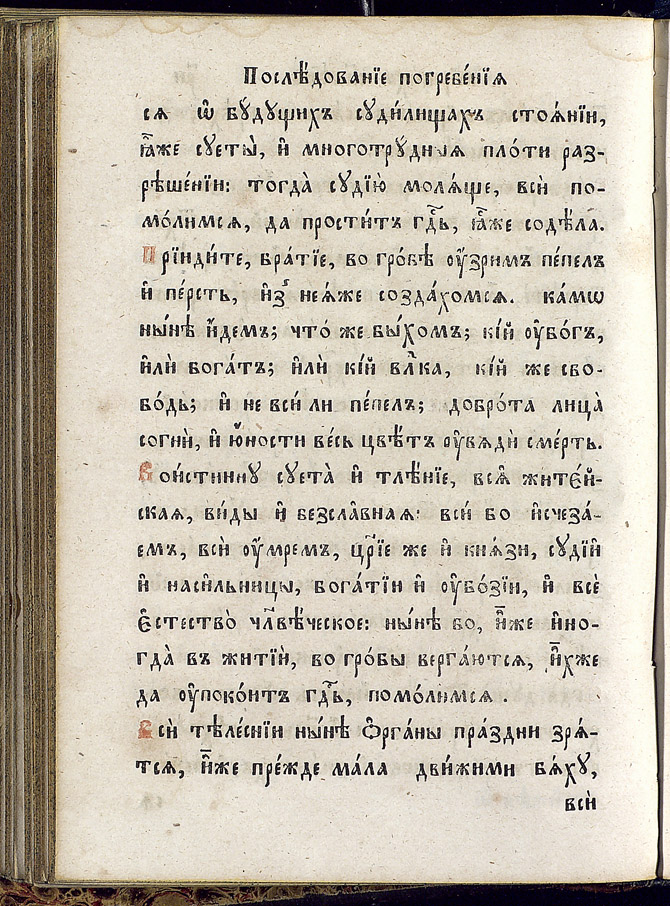 Послѣ́дованїе погребе́нїѧ
сѧ ѡ҆ бꙋ́дꙋщихъ сꙋди́лищахъ стоѧ́нїи,
ꙗ҆́же сꙋеты̀, и҆ многотрꙋ́дныѧ пло́ти раз-
рѣше́нїи: тогда̀ сꙋдїю̀ молѧ́ще, всѝ по-
мо́лимсѧ, да прости́тъ гдⷭ҇ь, ꙗ҆́же содѣ́ла.
Прїиди́те, бра́тїе, во гро́бѣ ᲂу҆́зримъ пе́пелъ
и҆ пе́рсть, и҆з̾ неѧ́же созда́хомсѧ. ка́мѡ
ны́нѣ и҆́демъ; что́ же бы́хомъ; кі́й ᲂу҆бо́гъ,
и҆лѝ бога́тъ; и҆лѝ кі́й влⷣка, кі́й же сво-
бо́дь; и҆ не всѝ ли пе́пелъ; добро́та лица̀
согнѝ, и҆ ю҆́ности ве́сь цвѣ́тъ ᲂу҆вѧдѝ сме́рть.
Вои́стиннꙋ сꙋета̀ и҆ тлѣ́нїе, всѧ̑ жите́й-
скаѧ, ви́ды и҆ безсла́внаѧ: всѝ бо и҆счеза́-
емъ, всѝ ᲂу҆́мремъ, црⷭ҇їе же и҆ кнѧ́зи, сꙋдїи̑
и҆ наси́льницы, бога́тїи и҆ ᲂу҆бо́зїи, и҆ всѐ
є҆стество̀ члв҃ѣ́ческое: ны́нѣ бо, и҆̀же и҆но-
гда̀ въ житїѝ, во гро́бы верга́ютсѧ, и҆̀хже
да ᲂу҆поко́итъ гдⷭ҇ь, помо́лимсѧ
Всѝ тѣле́снїи ны́нѣ ѻ҆рга́ны пра́здни зрѧ́-
тсѧ, и҆̀же пре́жде ма́ла дви́жими бѧ́хꙋ,
всѝ